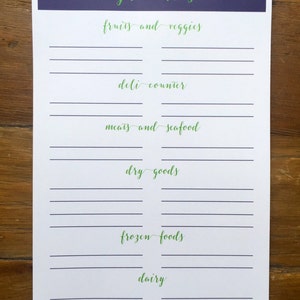 fruits and veggies
deli counter
meats and seafood
dry goods
frozen foods
dairy